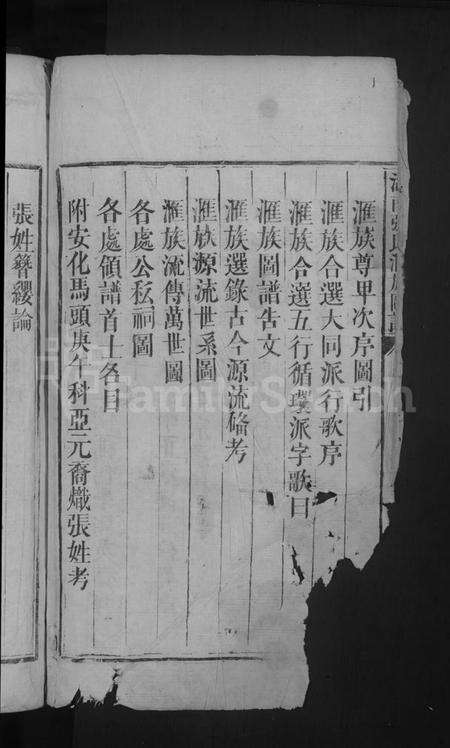 滙族尊卑次序圖引
滙族合選大同派行歌序
滙族合選五行循環派字歌曰
滙族圖譜告文
滙族選錄古今源流畧考
滙族源流世系圖
滙族流傳萬世圖
各處公私祠圖
各處領譜首士各目
附安化馬頭庚午科亞元喬熾張姓考
張姓簪纓論
FamilySearch